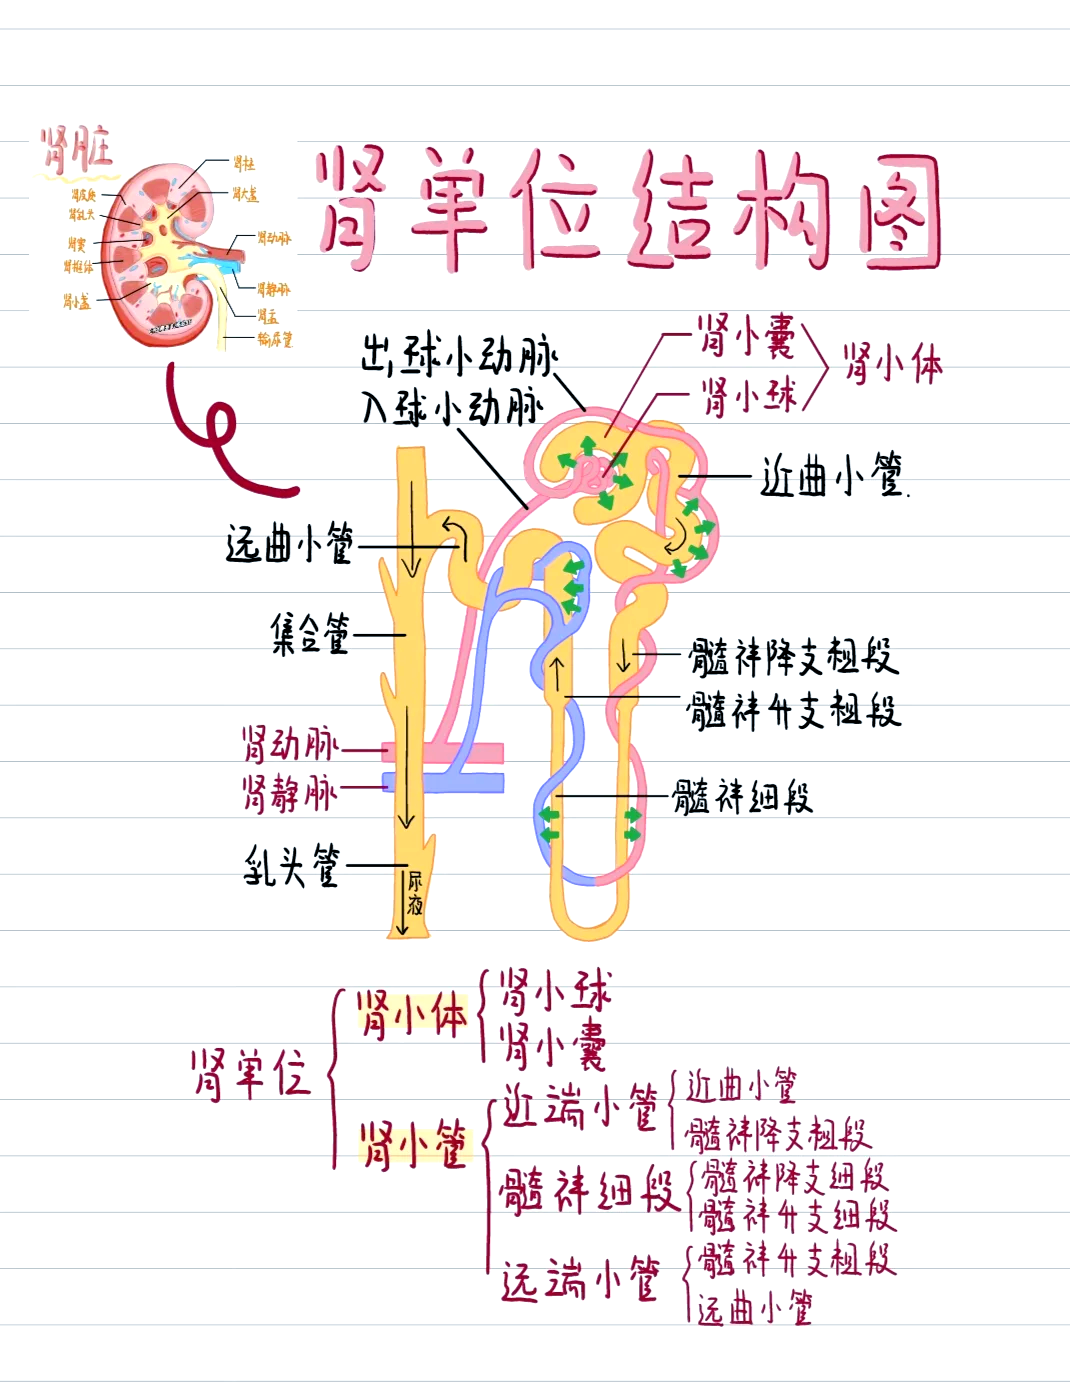 肾脏
肾柱
肾皮质
肾大盏
肾乳头
肾动脉
肾窦
肾椎体
肾静脉
肾小盏
肾盂
输尿管
肾单位结构图
出球小动脉
入球小动脉
肾小囊
肾小球
肾小体
近曲小管.
远曲小管
集合管
髓袢降支粗段
髓袢升支粗段
肾动脉
肾静脉
髓袢细段
乳头管
尿液
肾单位
肾小体
肾小球
肾小囊
肾小管
近端小管
近曲小管
髓袢降支粗段
髓袢细段
髓袢降支细段
髓袢升支细段
远端小管
髓袢升支粗段
远曲小管